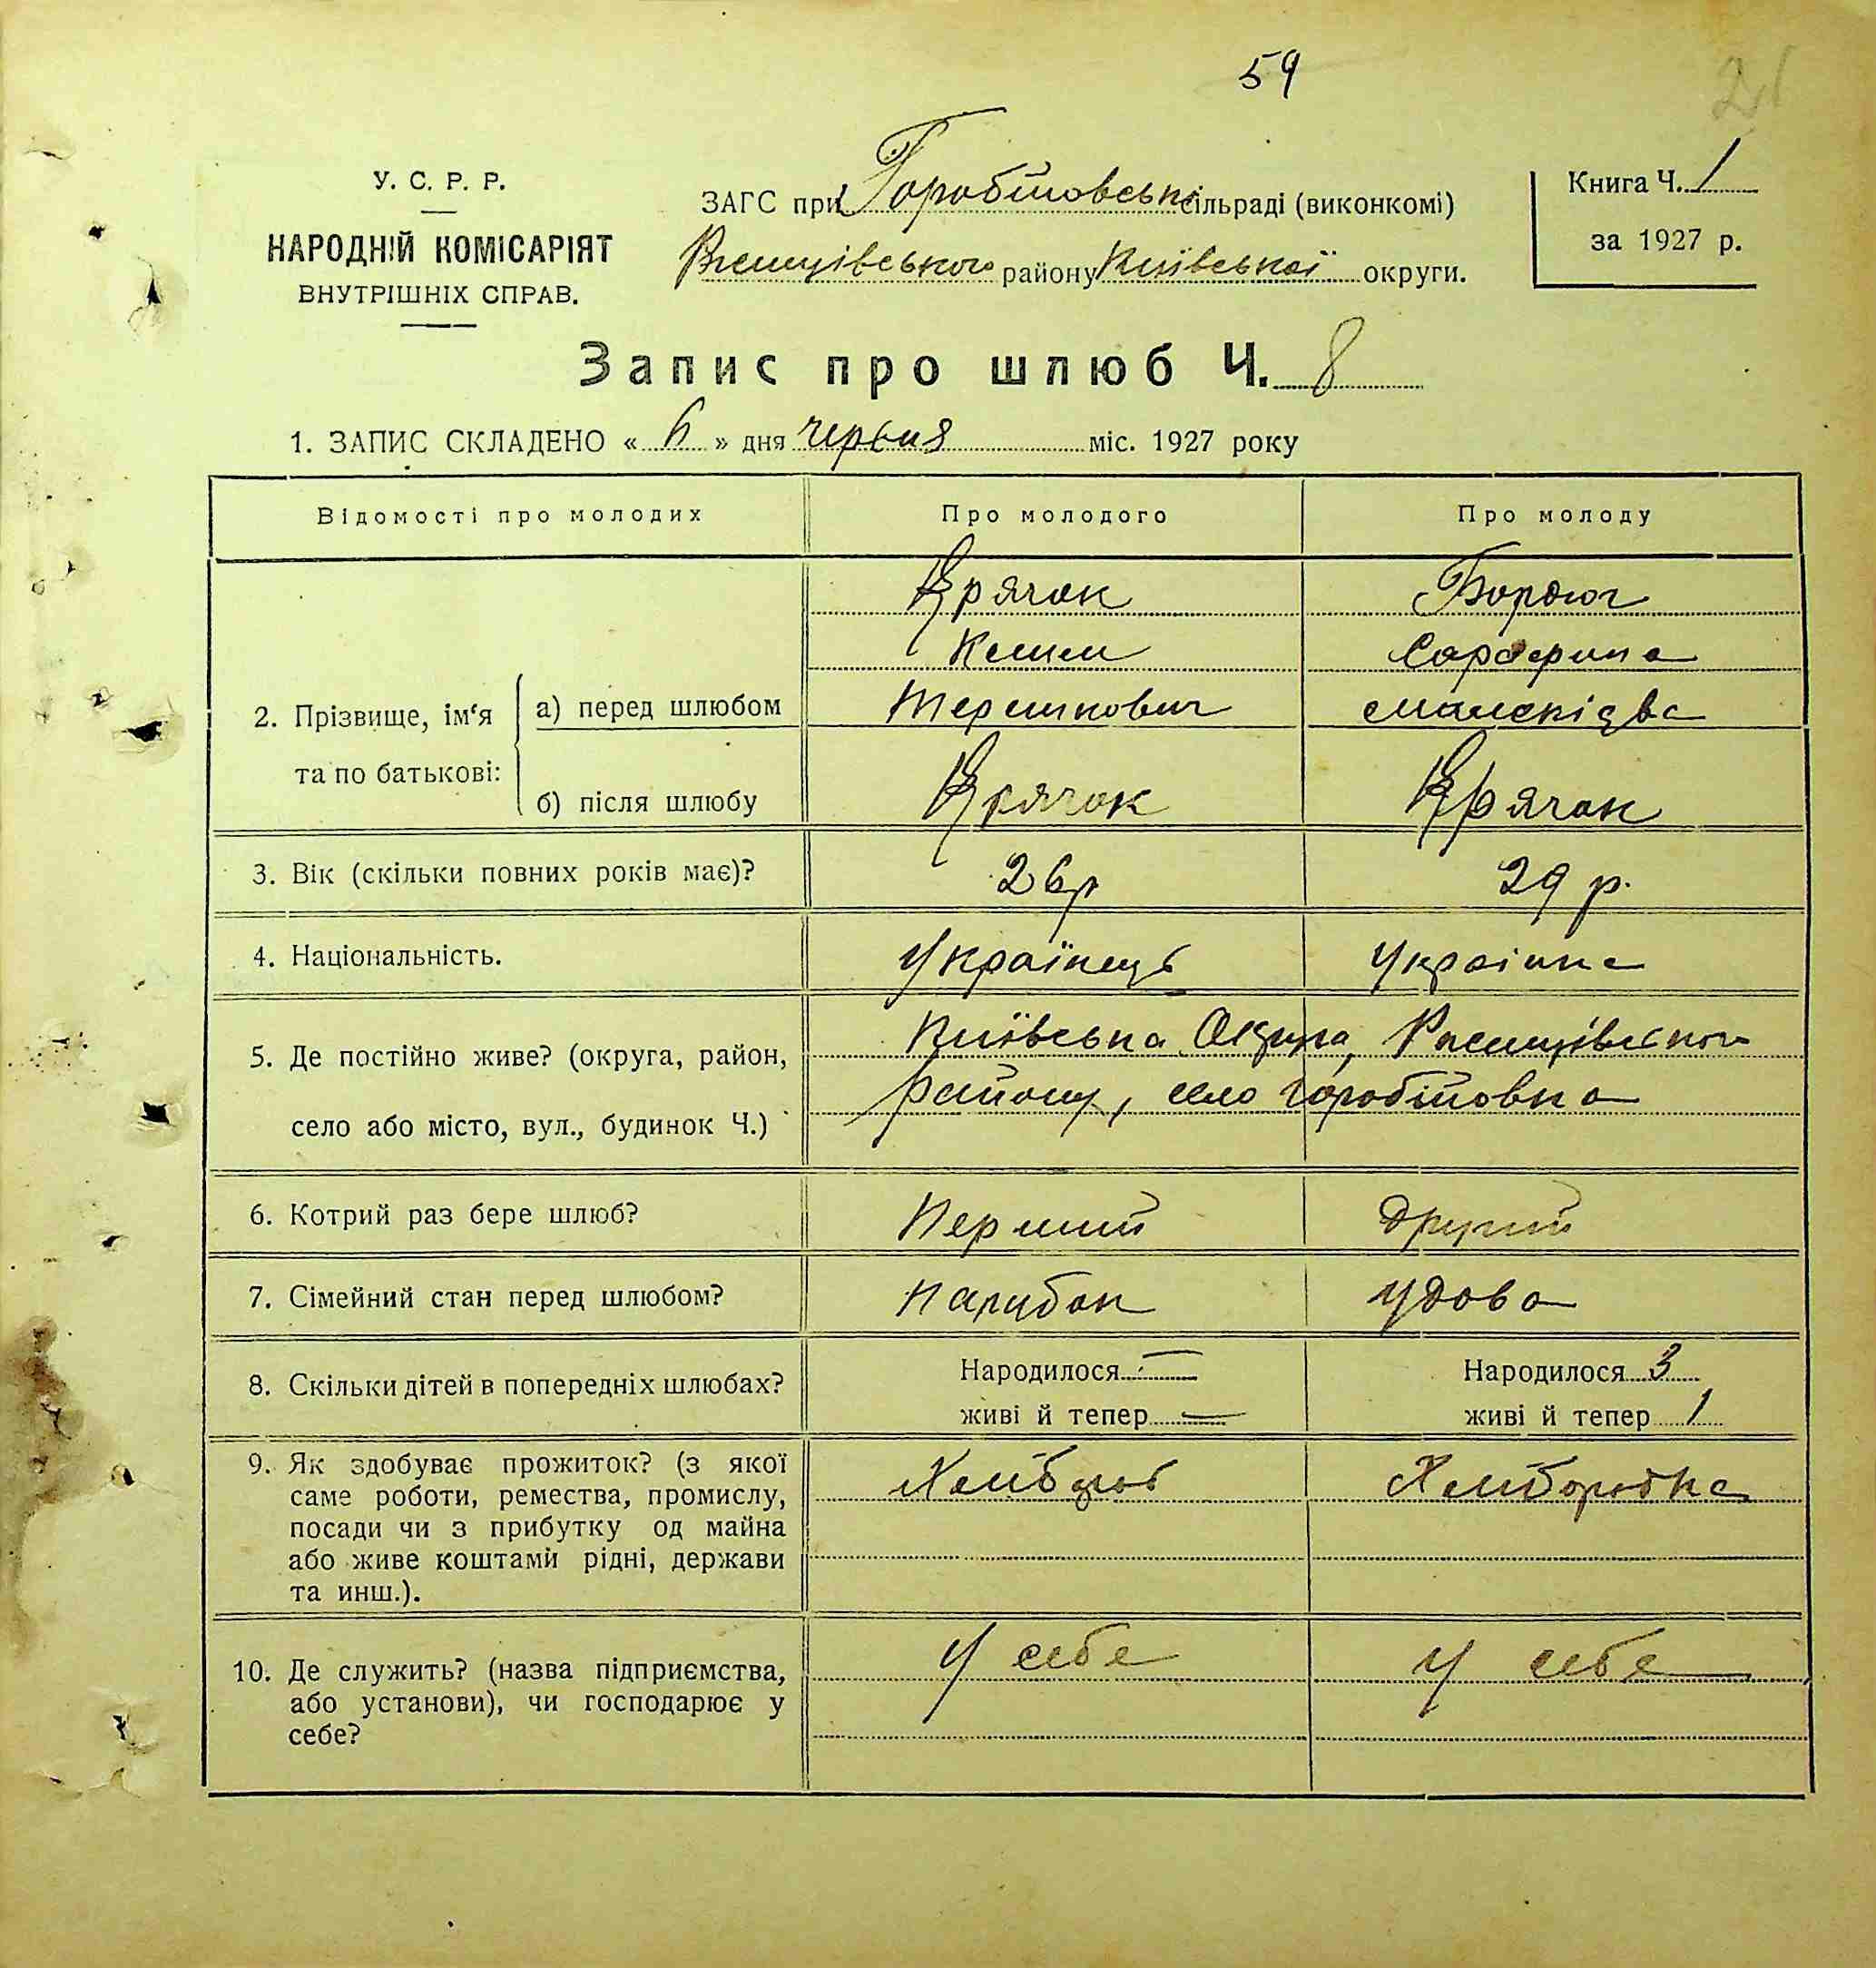 59
21
У. С. Р. Р.
НАРОДНІЙ КОМІСАРІЯТ
ВНУТРІШНІХ СПРАВ.
ЗАГС при Горобійовськ сільраді (виконкомі)
району Київської округи.
Книга Ч. 1
за 1927 р.
Запис про шлюб Ч. 8
1. ЗАПИС СКЛАДЕНО « 6 » дня червня міс. 1927 року
Відомості про молодих
Про молодого
Про молоду
2. Прізвище, ім‘я
та по батькові:
а) перед шлюбом
б) після шлюбу
Крячок
Бордюг
Крячок
Крячок
3. Вік (скільки повних років має)?
26 р
29 р.
4. Національність.
Українець
Українка
5. Де постійно живе? (округа, район,
село або місто, вул., будинок Ч.)
Київська Округа,
району, село Горобійовка
6. Котрий раз бере шлюб?
Перший
Другий
7. Сімейний стан перед шлюбом?
Парубок
Удова
8. Скільки дітей в попередніх шлюбах?
Народилося —
живі й тепер —
Народилося 3
живі й тепер 1
9. Як здобуває прожиток? (з якої
саме роботи, ремества, промислу,
посади чи з прибутку од майна
або живе коштами рідні, держави
та инш.).
Хлібороб
Хліборобка
10. Де служить? (назва підприємства,
або установи), чи господарює у
себе?
У себе
У себе